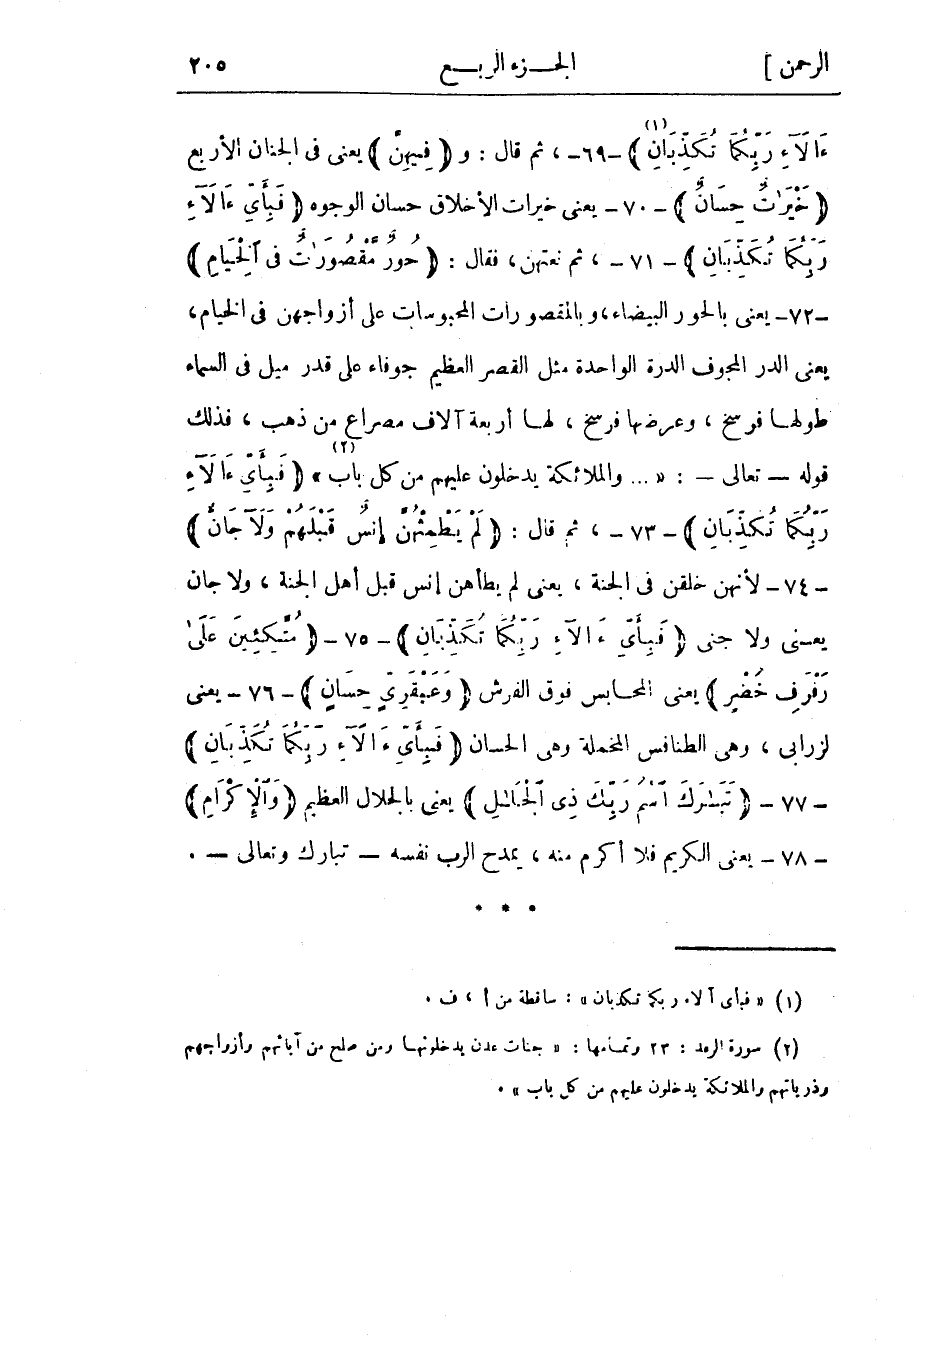 الرحمن ] الجـزء الربـع ٢٠٥
ءَالَآءِ رَبِّكُمَا تُكَذِّبَانِ ﴾ -٦٩- (١) ، ثم قال : و ﴿ فِيهِنَّ ﴾ يعنى فى الجنان الأربع
﴿ خَيْرَٰتٌ حِسَانٌ ﴾ - ٧٠ - يعنى خيرات الأخلاق حسان الوجوه ﴿ فَبِأَيِّ ءَالَآءِ
رَبِّكُمَا تُكَذِّبَانِ ﴾ - ٧١ - ، ثم نعتهن، فقال : ﴿ حُورٌ مَّقْصُورَٰتٌ فِى ٱلْخِيَامِ ﴾
-٧٢- يعنى بالحور البيضاء، وبالمقصورات المحبوسات على أزواجهن فى الخيام،
يعنى الدر المجوف الدرة الواحدة مثل القصر العظيم جوفاء على قدر ميل فى السماء
طولهـا فرسخ ، وعرضها فرسخ ، لهـا أربعة آلاف مصراع من ذهب ، فذلك
قوله — تعالى — : « ... والملائكة يدخلون عليهم من كل باب (٢) » ﴿ فَبِأَيِّ ءَالَآءِ
رَبِّكُمَا تُكَذِّبَانِ ﴾ - ٧٣ - ، ثم قال : ﴿ لَمْ يَطْمِثْهُنَّ إِنسٌ قَبْلَهُمْ وَلَا جَانٌّ ﴾
- ٧٤ - لأنهن خلقن فى الجنة ، يعنى لم يطأهن إنس قبل أهل الجنة ، ولا جان
يعـنى ولا جنى ﴿ فَبِأَيِّ ءَالَآءِ رَبِّكُمَا تُكَذِّبَانِ ﴾ - ٧٥ - ﴿ مُتَّكِئِينَ عَلَىٰ
رَفْرَفٍ خُضْرٍ ﴾ يعنى المحـابس فوق الفرش ﴿ وَعَبْقَرِيٍّ حِسَانٍ ﴾ - ٧٦ - يعنى
لزرابى ، وهى الطنافس المخملة وهى الحسان ﴿ فَبِأَيِّ ءَالَآءِ رَبِّكُمَا تُكَذِّبَانِ ﴾
- ٧٧ - ﴿ تَبَـٰرَكَ ٱسْمُ رَبِّكَ ذِى ٱلْجَلَـٰلِ ﴾ يعنى بالجلال العظيم ﴿ وَٱلْإِكْرَامِ ﴾
- ٧٨ - يعنى الكريم فلا أكرم منه ، يمدح الرب نفسه — تبارك وتعالى — .
* * *
(١) « فبأى آلاء ربكما تكذبان » : ساقطة من أ ، ف .
(٢) سورة الرعد : ٢٣ وتمـامها : « جنات عدن يدخلونهـا ومن صلح من آبائهم وأزواجهم
وذرياتهم والملائكة يدخلون عليهم من كل باب » .